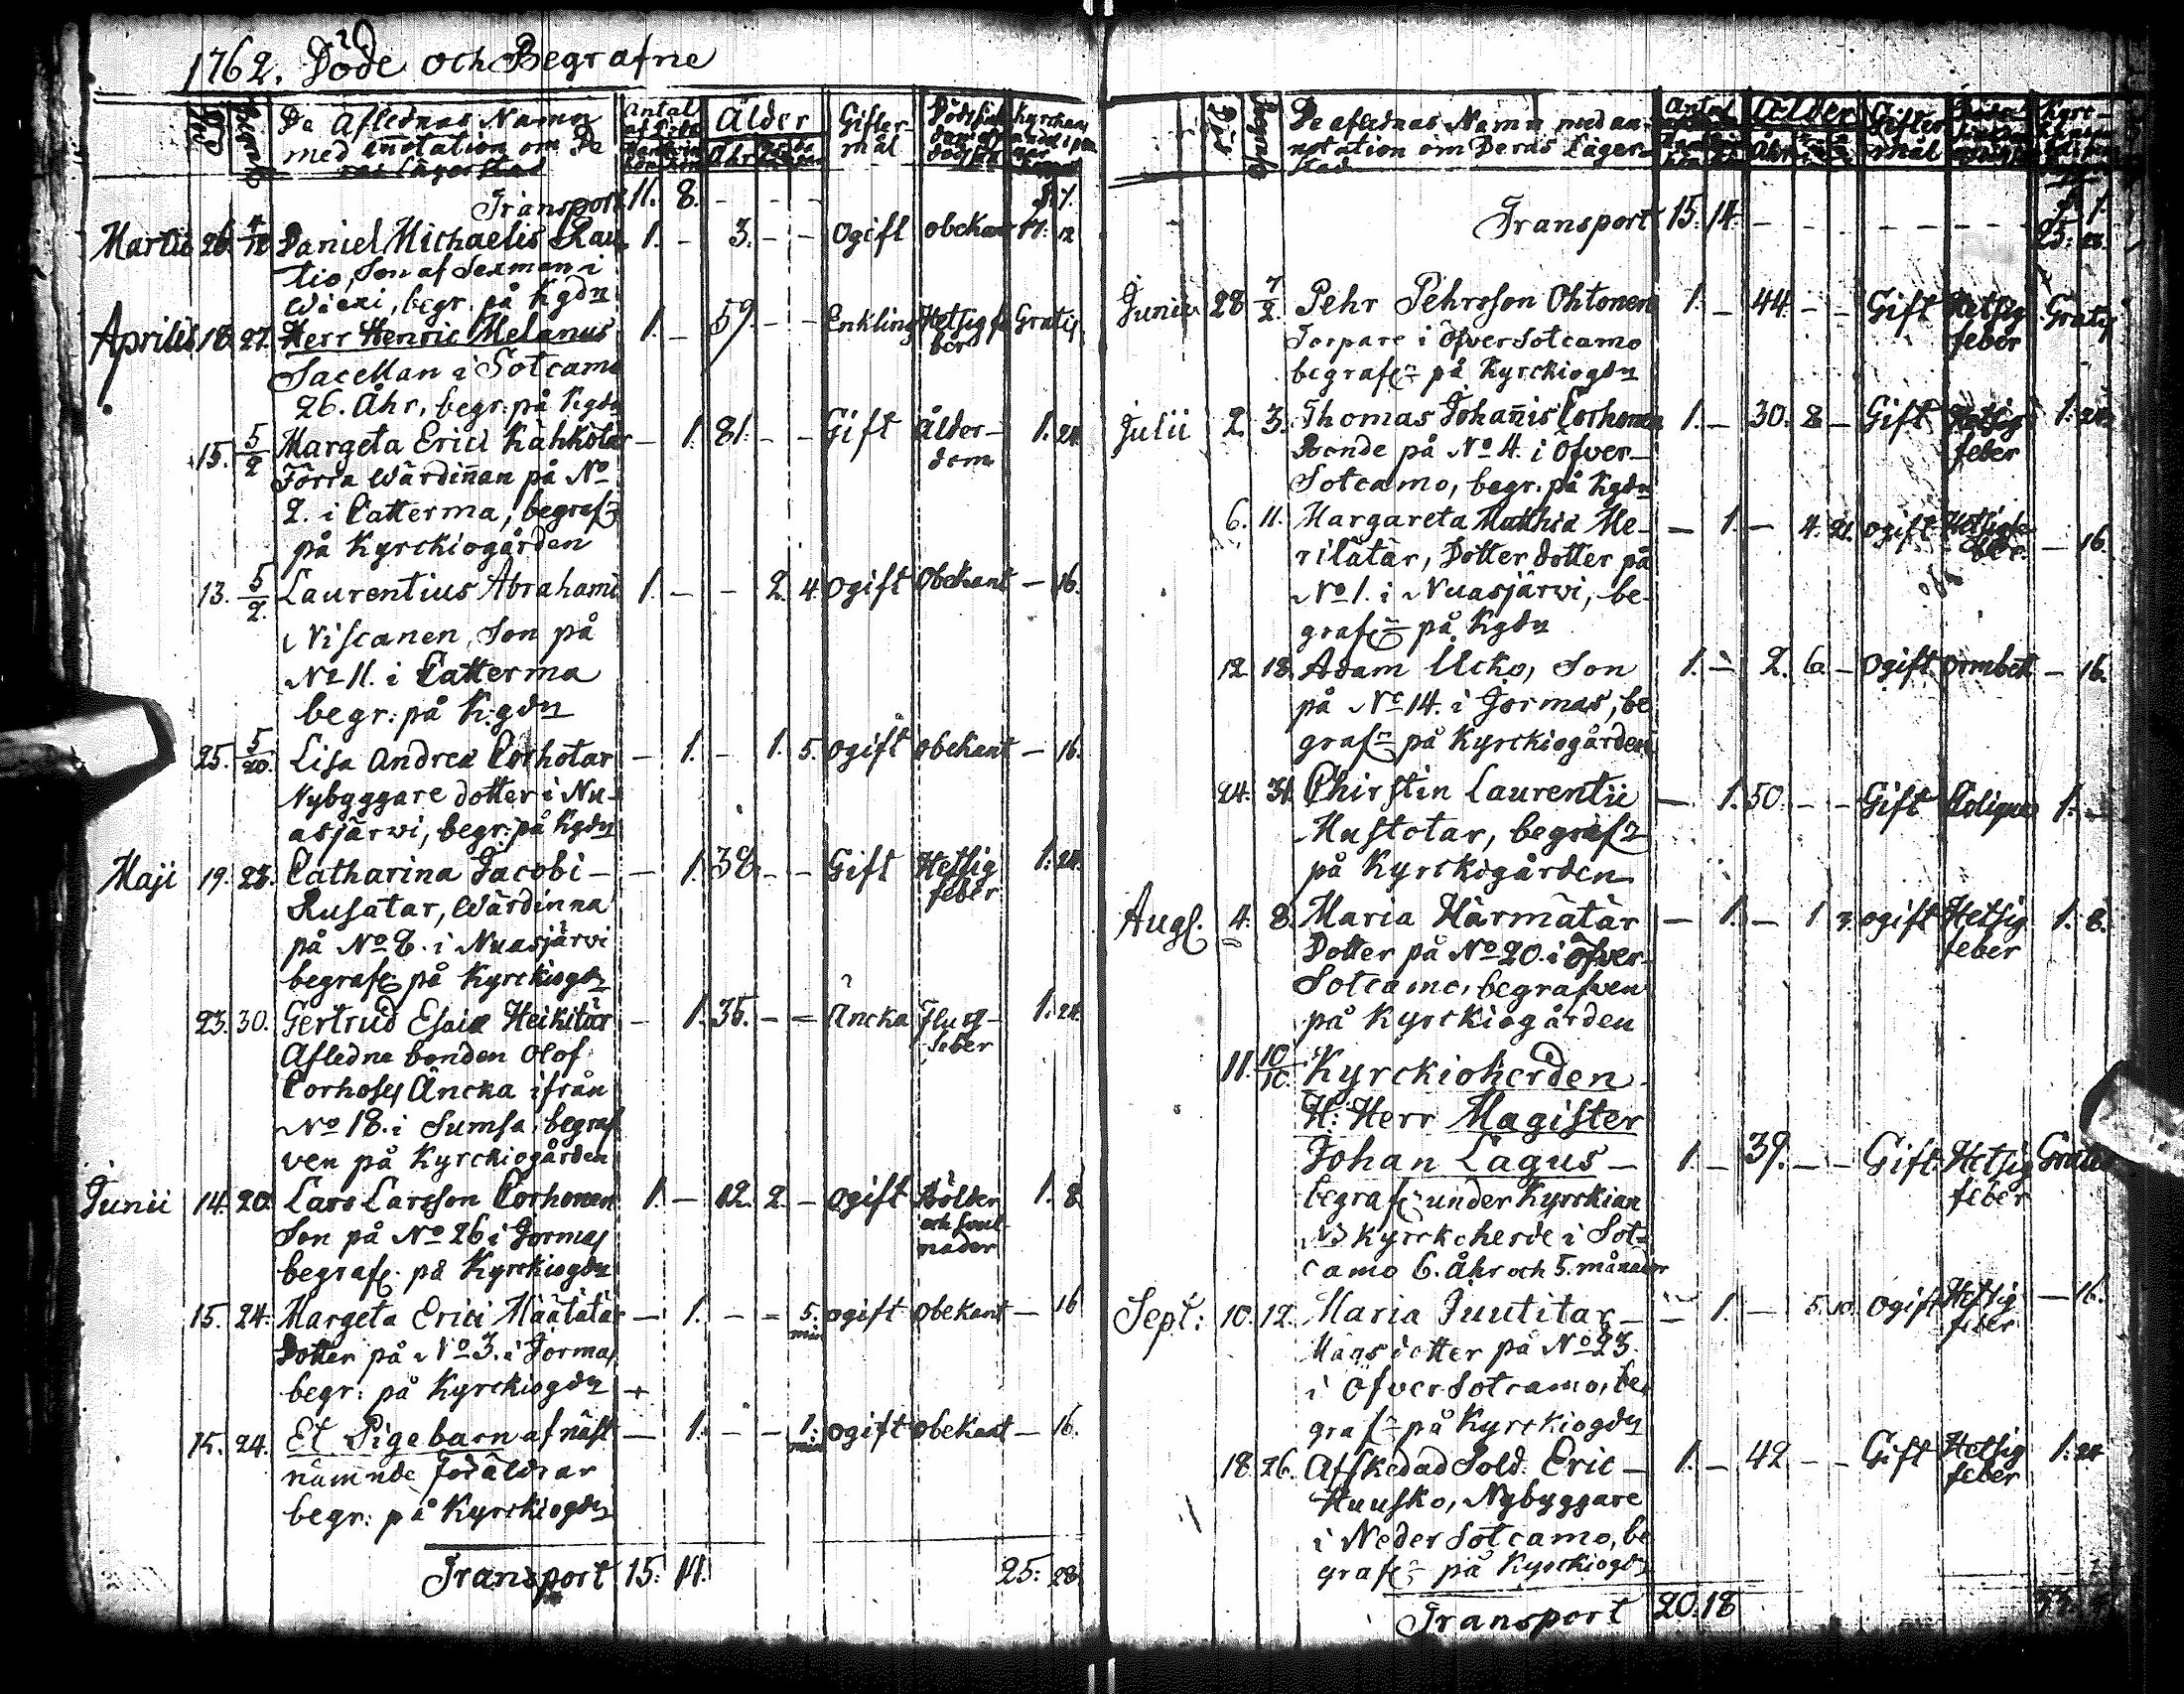 1762. Döde och Begrafne
De Aflednas Namn
med annotation om De
ras lägerstad
Antal
Ålder
Åhr
Gifter
mål
Transport 11. 8. - - -
Martii 26. 4/12 Daniel Michaelis Rau 1. - 3. - - Ogift obekant 17. 12
tio, Son af Sexman i
Wiexi, begr. på Kgdn
Aprilis 18. 27. Herr Henric Melanus 1. - 59. - - Enkling Hetsig fe Gratis
ber
Sacellan i Sotcamo
26. Åhr, begr: på Kgdn
15. 5/2 Margeta Erici Kähkötär - 1. 81. - - Gift Ålder- 1. 24
dom
Förra Wärdinnan på No
2. i Catterma, begraf:
på Kyrckiogården
13. 5/2. Laurentius Abrahami 1. - - 2. 4. Ogift Obekant - 16.
Niscanen, Son på
No 11. i Catterma
begr: på K:gdn
25. 5/20. Lisa Andreæ Corhotar - 1. - 1. 5. Ogift obekant - 16.
Nybyggare dotter i Nu-
asjärwi, begr: på Kgdn
Maji 19. 23. Catharina Jacobi - - 1. 38. - - Gift Hetsig 1. 24.
feber
Rusatar, Wärdinna
på No 8. i Nuasjärwi
begraf: på Kyrckiogdn
23. 30. Gertrud Esaiæ Heikitär - 1. 36. - - Äncka Flusg- 1. 24.
feber
Afledne bonden Olof
Corhoses Äncka ifrån
No 18. i Sumsa, begraf
ven på Kyrckiogården
Junii 14. 20. Lars Larsson Corhonen 1. - 12. 2. - Ogift Bölder 1. 8
och
nader
Son på No 26 i Jormas
begraf: på Kyrckiogdn
15. 24. Margeta Erici Määtätär - 1. - - 5. ogift Obekant - 16
min
Dotter på No 3. i Jormas
begr: på Kyrckiogdn
15. 24. Et Pigebarn af näst - 1. - - 1. ogift obekant - 16.
min
nämnde Föräldrar
begr: på Kyrckiogdn
Transport 15. 14. 25: 28
De aflednas Namn med an-
notation om Deras Läger-
stad
Ålder
Åhr
Gifter
mål
Transport 15. 14. - - - - - - -
25. 28.
Junii 28 7/2. Pehr Pehrsson Ohtonen 1. - 44. - - Gift Hetsig Gratis
feber
Torpare i Öfversotcamo
begraf:n på Kyrckiogdn
Julii 2. 3. Thomas Johannis Corhonen 1. - 30. 8 - Gift Hetsig 1. 24.
feber
Bonde på No 4. i Öfver-
Sotcamo, begr: på Kgdn
6. 11. Margareta Matthiæ Me- - 1. - 4. 21. ogift Hetsig fe- - 16.
ber.
rilätär, Dotter dotter på
No 1. i Nuasjärvi, be-
graf:n på Kgdn
12. 18. Adam Ucko, Son 1. - 2. 6. - ogift ormbett - 16.
på No 14. i Jormas, be
graf:n på Kyrckiogården
24. 31. Chirstin Laurentii - 1. 50. - - Gift Colique 1. -
Mustotar, begraf:n
på Kyrckiogården
Augs. 4. 8. Maria Härmätär - 1. - 1 7. ogift Hetsig 1. 8.
feber
Dotter på No 20. i Öfver-
Sotcamo, begrafven
på Kyrckiogården
11. 10/10. Kyrckioherden
H: Herr Magister
Johan Lagus - 1. - 39. - - Gift Hetsig Gratis
feber
begraf:n under Kyrckian
NB Kyrckoherde i Sot-
camo 6. Åhr och 5. månader
Sept: 10. 12. Maria Juutitar - - 1. - 5. 10. Ogift Hetsig - 16.
feber
Mågs dotter på No 23.
i Öfver Sotcamo, be
graf:n på Kyrckiogdn
18. 26. Afskedad Sold. Eric - 1. - 42 - - Gift Hetsig 1. 24
feber
Huusko, Nybyggare
i Neder Sotcamo, be
graf:n på Kyrckiogdn
Transport 20. 18